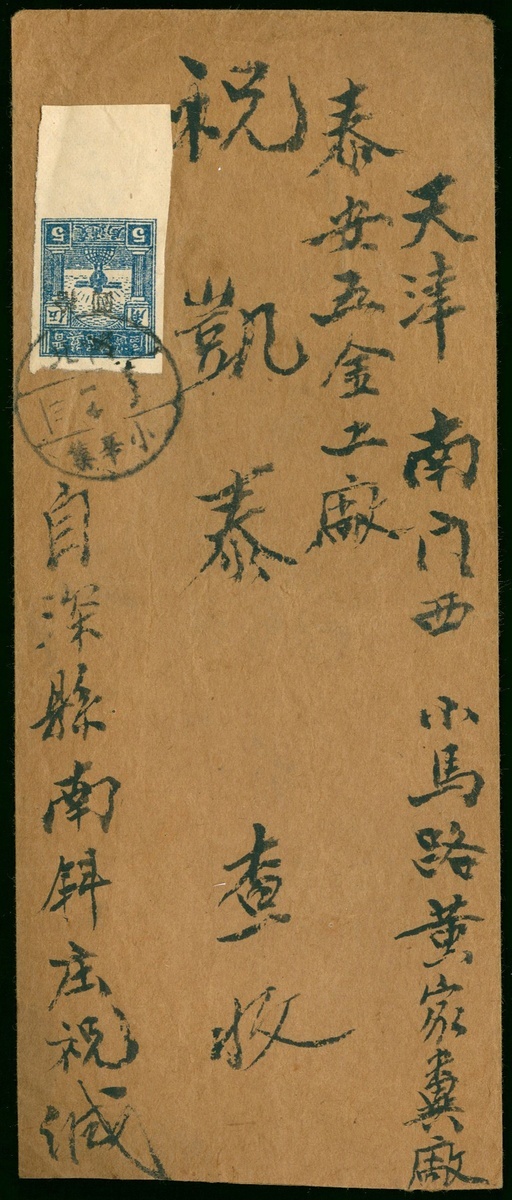 天津 南门西 小马路黄家糞廠
泰安五金工廠
祝 凱泰 查收
自深縣南斜庄祝緘
5 5